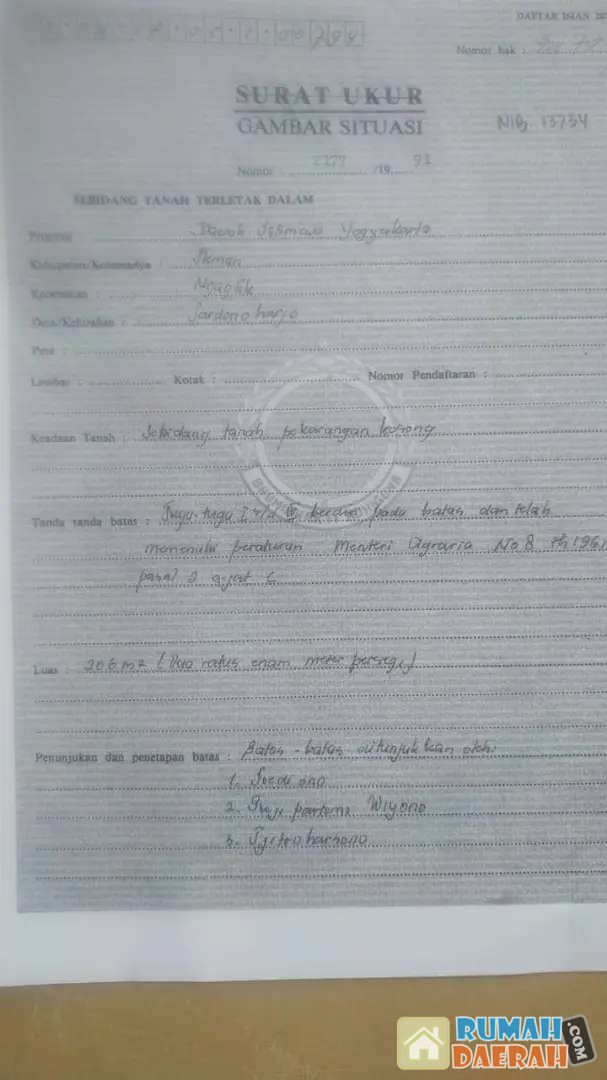 DAFTAR ISIAN
Nomor hak :
SURAT UKUR
GAMBAR SITUASI
NIB. 13754
Nomor : /19
SEBIDANG TANAH TERLETAK DALAM
Propinsi : Daerah Istimewa Yogyakarta
Kabupaten/Kotamadya : Sleman
Kecamatan : Ngaglik
Desa/Kelurahan : Sardonoharjo
Peta :
Lembar : Kotak : Nomor Pendaftaran :
Keadaan Tanah : Sebidang tanah pekarangan kosong
Tanda tanda batas : Tugu-tugu I s/d berdiri pada batas dan telah
memenuhi peraturan Menteri Agraria No 8 th 1961
pasal 2 ayat
Luas : 206 m2 (Dua ratus enam meter persegi)
Penunjukan dan penetapan batas : Batas - batas ditunjukkan oleh:
1.
2. Wiyono
3.
RUMAH
DAERAH
.COM